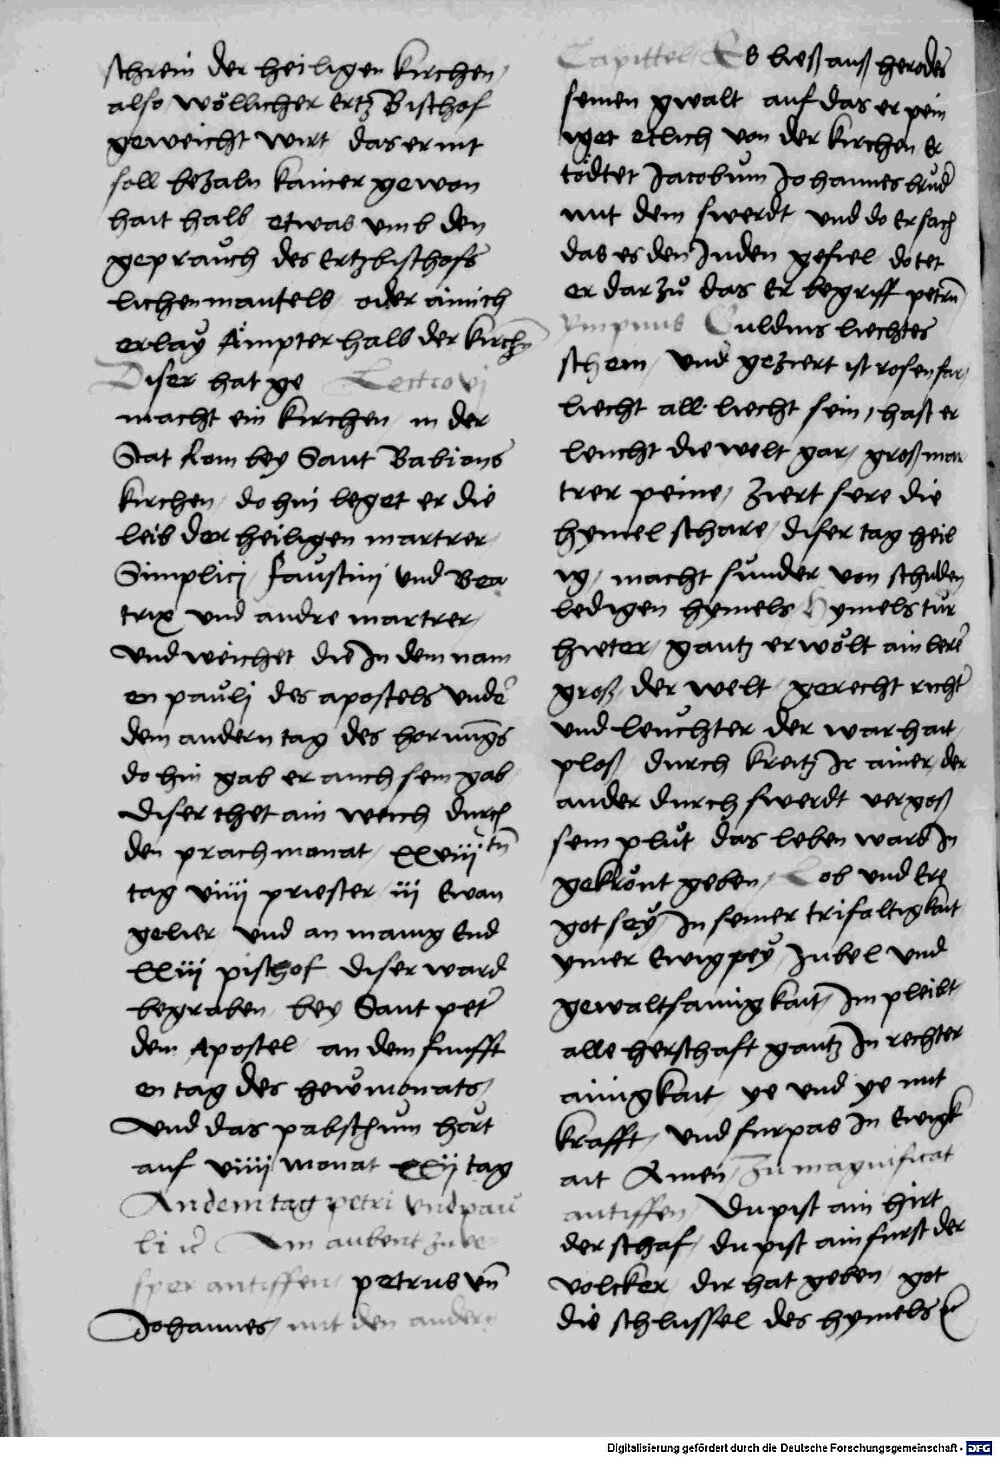 schrein der heiligen kirchen /
also wöllicher Ertz Bischof
geweicht wirt das er nit
soll bezaln kainer gewon
hait halb etwas vmb den
geprauch des Ertzbischofs
lichen mantels oder ainich
erlay Ämpter halb der kirchn̄
Diser hat ge Lectio vj
macht ein kirchen / in der
Stat Rom bey Sant Babians
kirchen / do hin leget er die
leib der heiligen martrer /
Simplicj / faustinj vnd Bea
trix vnd andre martrer /
vnd weichet die In dem nam
en paulj des apostels vnder
dem andern tag des hornūgs
do hin gab er auch sein gab
diser thet ain weich durch
den prachmonat / xxviij tn̄
tag viiij priester / iij Ewan
gelier vnd an manig End
xxiij pischof diser ward
begraben / bey Sant peter
dem Apostel / an dem funfft
en tag des hewmonats /
vnd das pabstum hört
auf viiij monat xxij tag
An dem tag petri vnd pau
li ⁊c̄ Am aubent zu ve
sper antiffen / petrus vn̄
Johannes / mit den andern
Capittel / Es ließ auß herodes
seinen gwalt auf das er pein
iget etlich von der kirchen Er
tödtet Jacobum Johannes brud̄
mit dem swerdt vnd do er sach
das es den Juden gefiel do tet
er darzu das Er begriff petrū
Ympnus Guldins liechtes
schein / vnd geziert ist rosenfar
liecht all liecht sein / hast er
leucht die welt gar / groß mar
trer peine / ziert sere die
hymel schare / diser tag heil
ig / macht sunder von schulden
ledigen hymels Hymels tür
hieter / gantz erwölt ain lerer
groß / der welt / gerecht richter
vnd leuchter der warhait
ploß / durch kreitz Ir ainer / der
ander durch swerdt vergoß
sein plüt das leben ward In
gekrönt geben / Lob vnd Ere
got sey In seiner trifaltigkait
ymer Ewig pey Jubel vnd
gewaltsamigkait / Im pleibt
alle herschaft gantz In rechter
ainigkait ye vnd ye mit
krafft / vnd furpas In Ewigk
ait Amen / Zu magnificat
antiffen / Du pist ain hirt
der schaf / du pist ain furst der
völcker / dir hat geben / got
die schlussel des hymels ⁊c̄
Digitalisierung gefördert durch die Deutsche Forschungsgemeinschaft - DFG